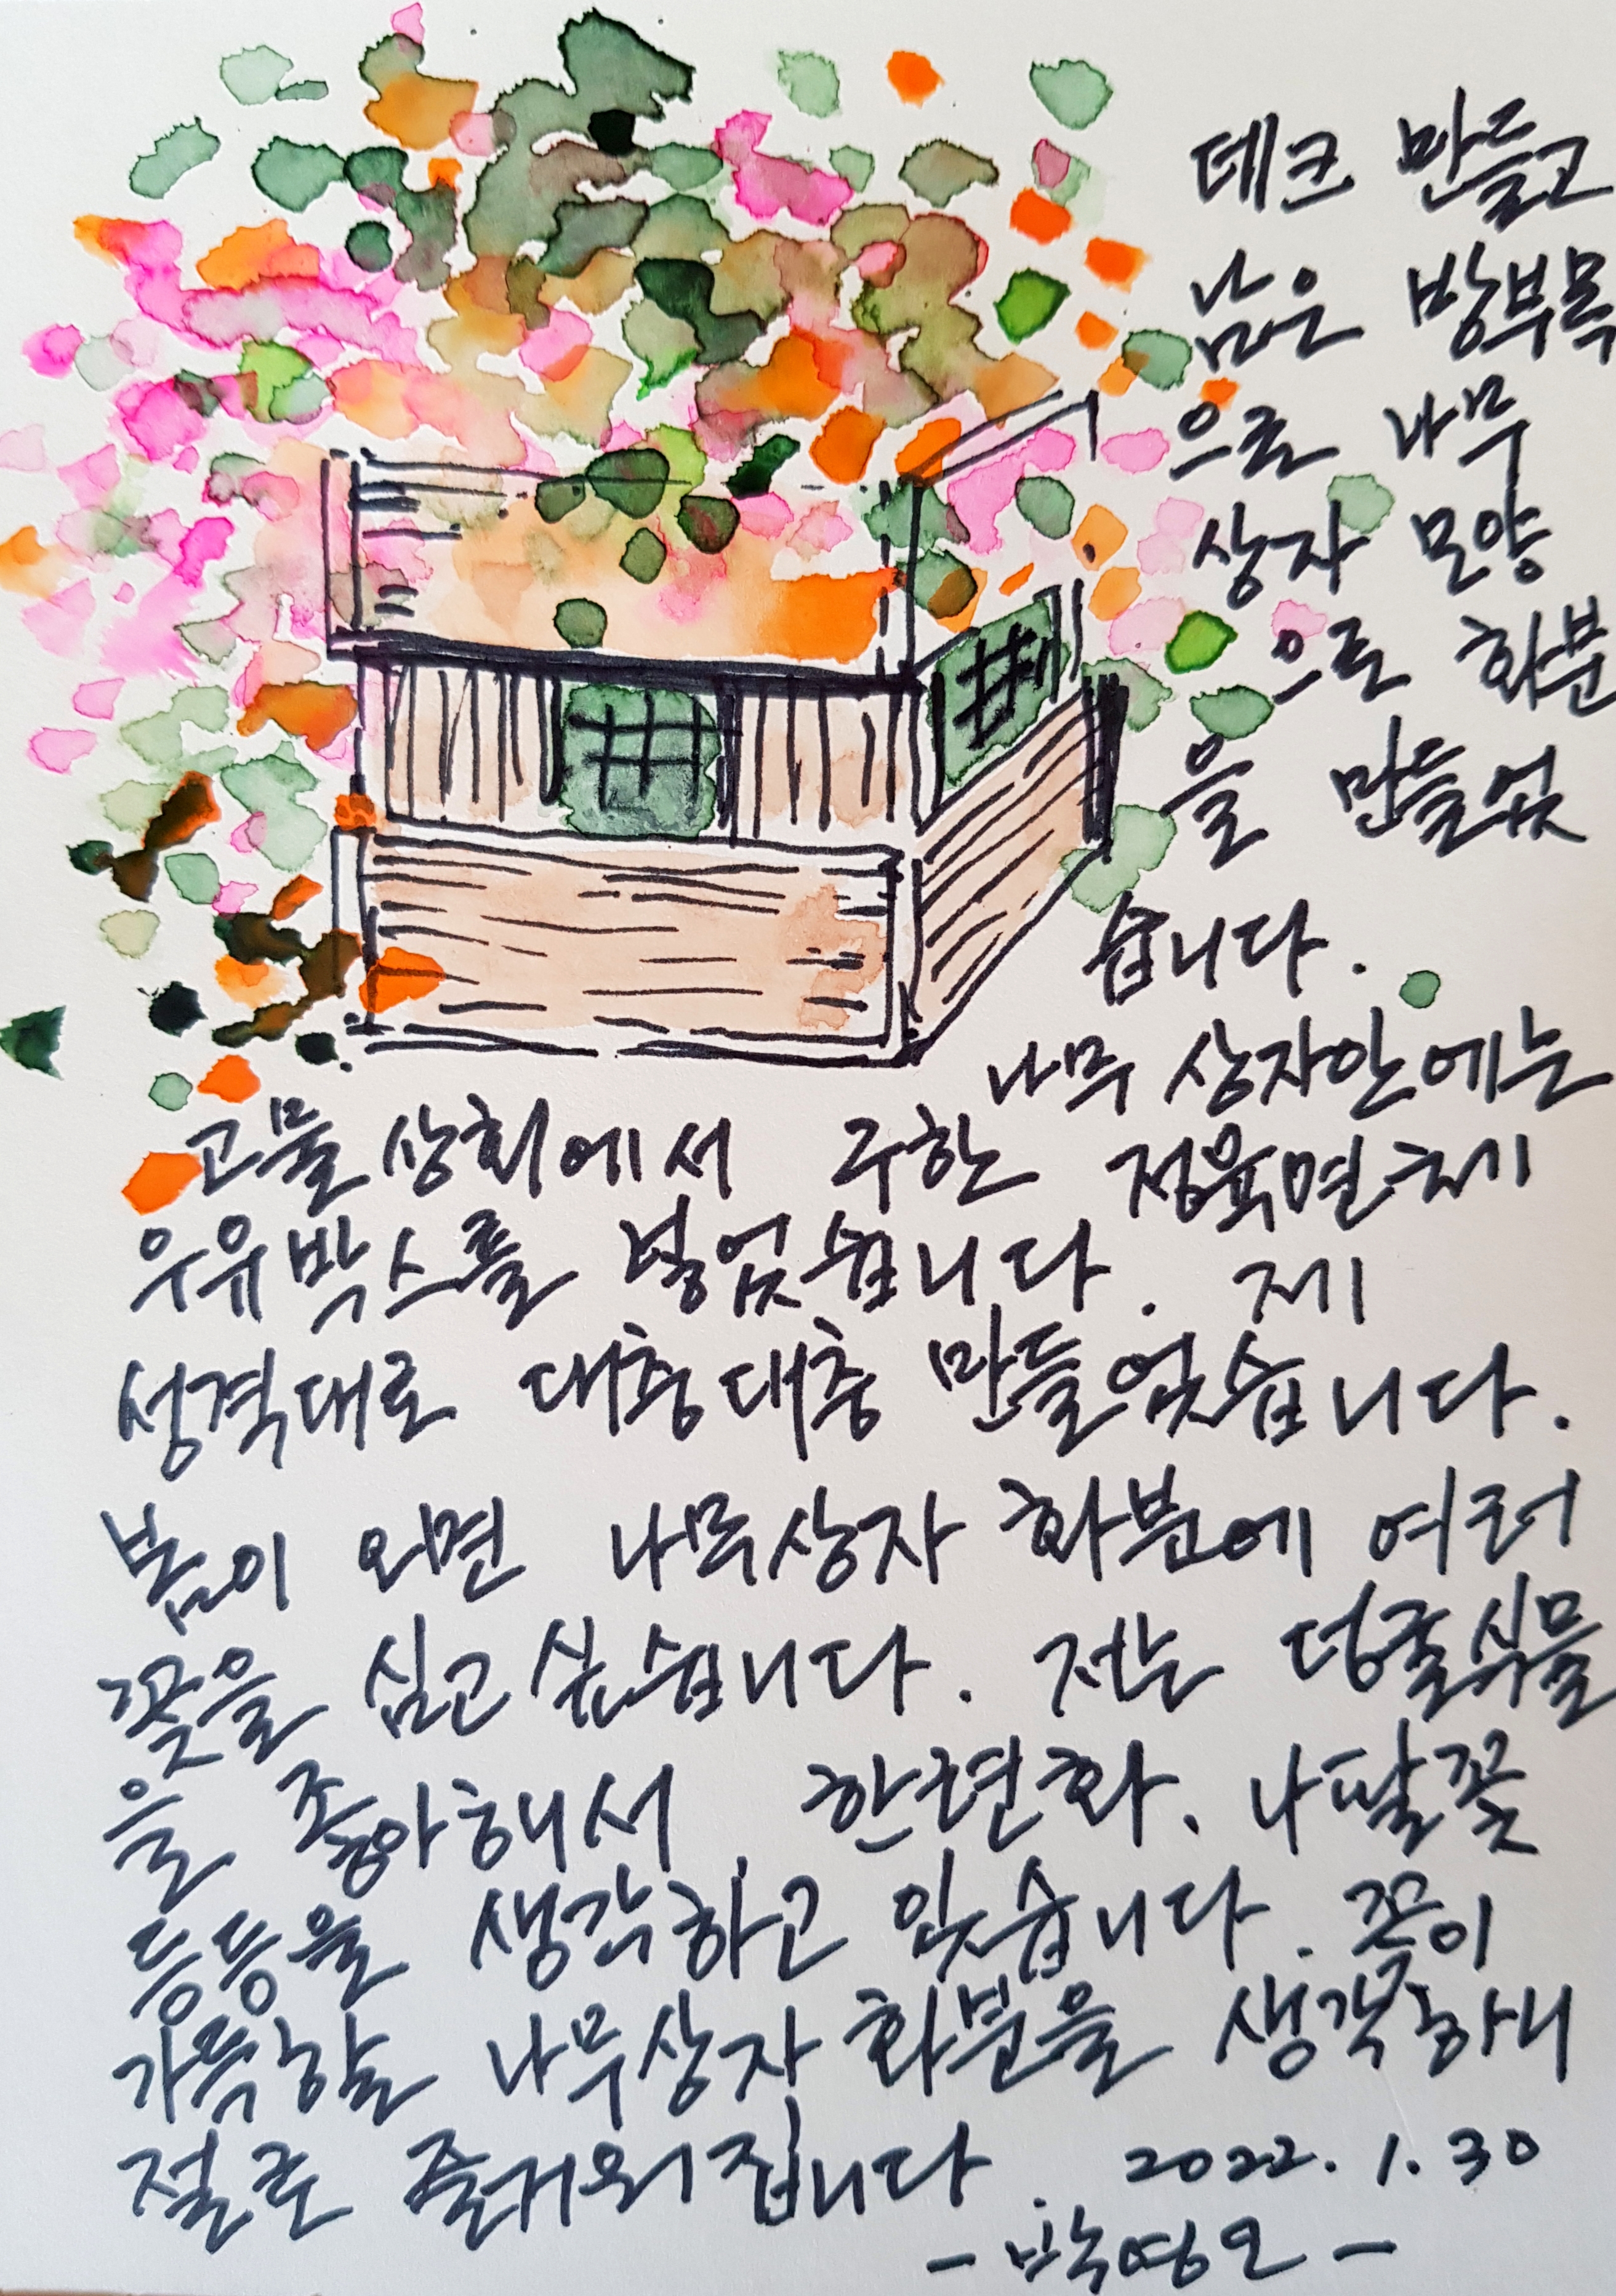 데크 만들고
남은 방부목
으로 나무
상자 모양
으로 화분
을 만들었
습니다.
나무 상자안에는
고물상회에서 구한 정육면체
우유박스를 넣었습니다. 제
성격대로 대충대충 만들었습니다.
봄이 오면 나무상자 화분에 여러
꽃을 심고 싶습니다. 저는 덩굴식물
을 좋아해서 한련화. 나팔꽃
등등을 생각하고 있습니다. 꽃이
가득할 나무상자 화분을 생각하니
절로 즐거워집니다. 2022. 1. 30
- 박영오 -